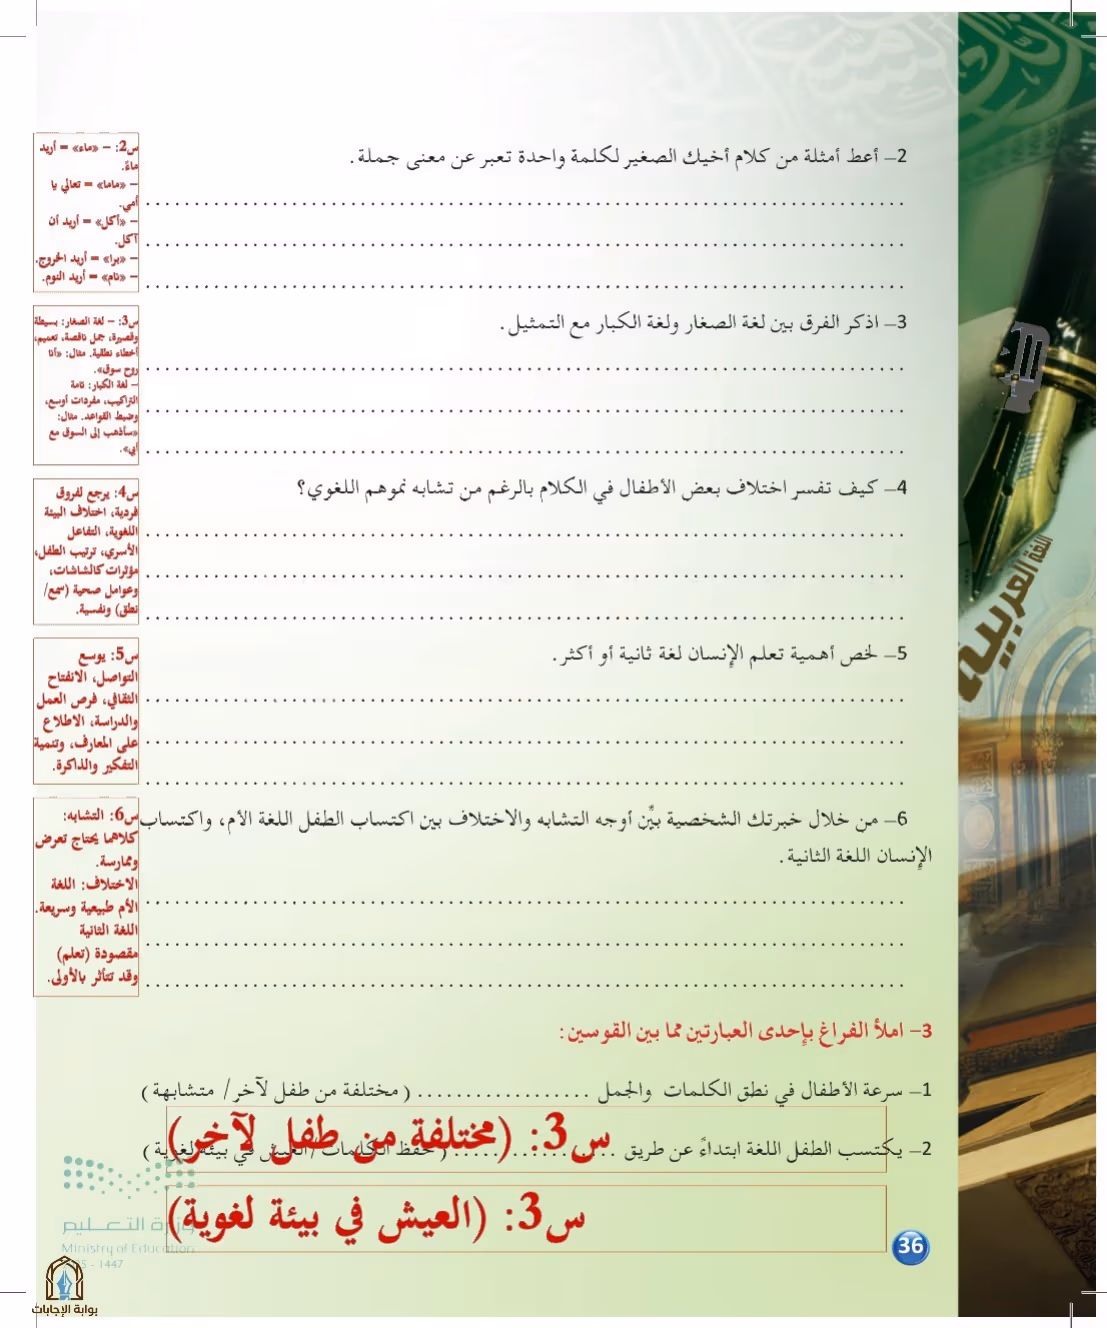 2- أعط أمثلة من كلام أخيك الصغير لكلمة واحدة تعبر عن معنى جملة.
س2: - «ماء» = أريد
ماءً.
- «ماما» = تعالي يا
أمي.
- «أكل» = أريد أن
آكل.
- «برا» = أريد الخروج.
- «نام» = أريد النوم.
3- اذكر الفرق بين لغة الصغار ولغة الكبار مع التمثيل.
س3: - لغة الصغار: بسيطة
وقصيرة، جمل ناقصة، تعميم،
أخطاء نطقية. مثال: «أنا
روح سوق».
- لغة الكبار: تامة
التراكيب، مفردات أوسع،
وضبط القواعد. مثال:
«سأذهب إلى السوق مع
أبي».
4- كيف تفسر اختلاف بعض الأطفال في الكلام بالرغم من تشابه نموهم اللغوي؟
س4: يرجع لفروق
فردية، اختلاف البيئة
اللغوية، التفاعل
الأسري، ترتيب الطفل،
مؤثرات كالشاشات،
وعوامل صحية (سمع/
نطق) ونفسية.
5- لخص أهمية تعلم الإنسان لغة ثانية أو أكثر.
س5: يوسع
التواصل، الانفتاح
الثقافي، فرص العمل
والدراسة، الاطلاع
على المعارف، وتنمية
التفكير والذاكرة.
6- من خلال خبرتك الشخصية بيِّن أوجه التشابه والاختلاف بين اكتساب الطفل اللغة الأم، واكتساب
الإنسان اللغة الثانية.
س6: التشابه:
كلاهما يحتاج تعرض
وممارسة.
الاختلاف: اللغة
الأم طبيعية وسريعة.
اللغة الثانية
مقصودة (تعلم)
وقد تتأثر بالأولى.
3- املأ الفراغ بإحدى العبارتين مما بين القوسين:
1- سرعة الأطفال في نطق الكلمات والجمل .................. ( مختلفة من طفل لآخر/ متشابهة )
س3: (مختلفة من طفل لآخر)
2- يكتسب الطفل اللغة ابتداءً عن طريق .................. ( حفظ الكلمات / العيش في بيئة لغوية )
س3: (العيش في بيئة لغوية)
اللغة العربية
وزارة التعليم
Ministry of Education
- 1447
36
بوابة الإجابات